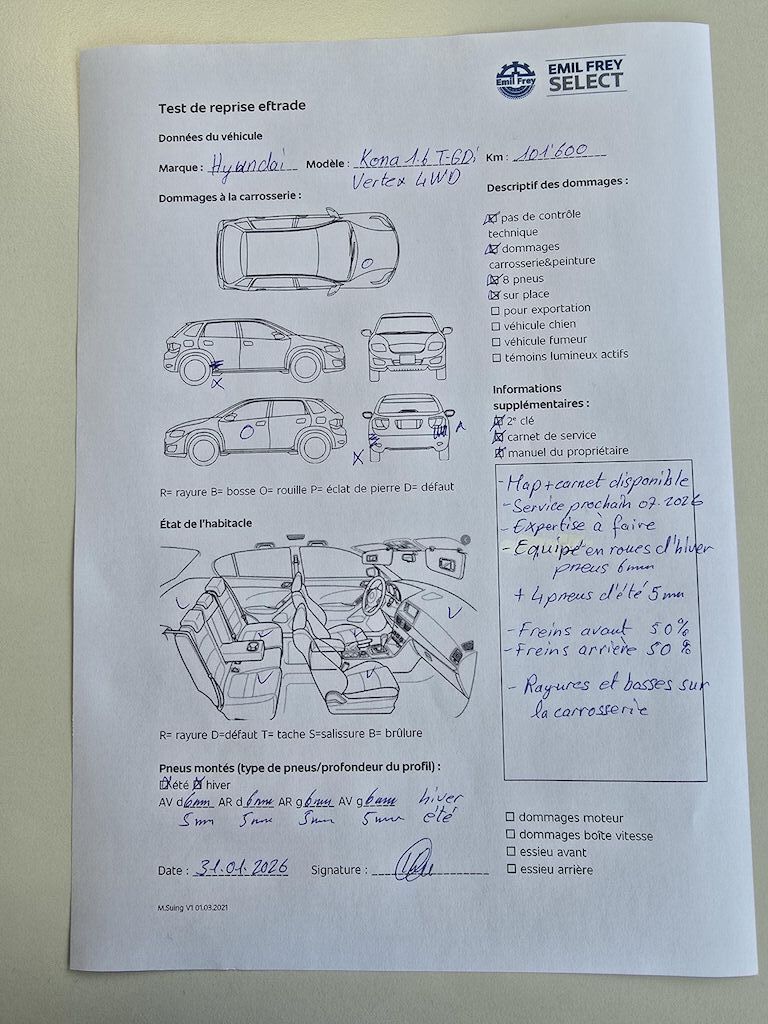 Emil Frey
EMIL FREY
SELECT
Test de reprise eftrade
Données du véhicule
Marque : Hyundai Modèle : Kona 1.6 T-GDi Km : 101'600
Vertex 4WD
Dommages à la carrosserie :
Descriptif des dommages :
pas de contrôle
technique
dommages
carrosserie&peinture
8 pneus
sur place
pour exportation
véhicule chien
véhicule fumeur
témoins lumineux actifs
X
X
R= rayure B= bosse O= rouille P= éclat de pierre D= défaut
Informations
supplémentaires :
2e clé
carnet de service
manuel du propriétaire
- Map + carnet disponible
- Service prochain 07.2026
- Expertise à faire
- Equipé en roues d'hiver
pneus 6mm
+ 4 pneus d'été 5mm
- Freins avant 50%
- Freins arrière 50%
- Rayures et bosses sur
la carrosserie
État de l'habitacle
R= rayure D=défaut T= tache S=salissure B= brûlure
Pneus montés (type de pneus/profondeur du profil) :
été hiver
AV d 6mm AR d 6mm AR g 6mm AV g 6mm hiver
5mm 5mm 5mm 5mm été
dommages moteur
dommages boîte vitesse
essieu avant
essieu arrière
Date : 31.01.2026 Signature :
M.Suing V1 01.03.2021